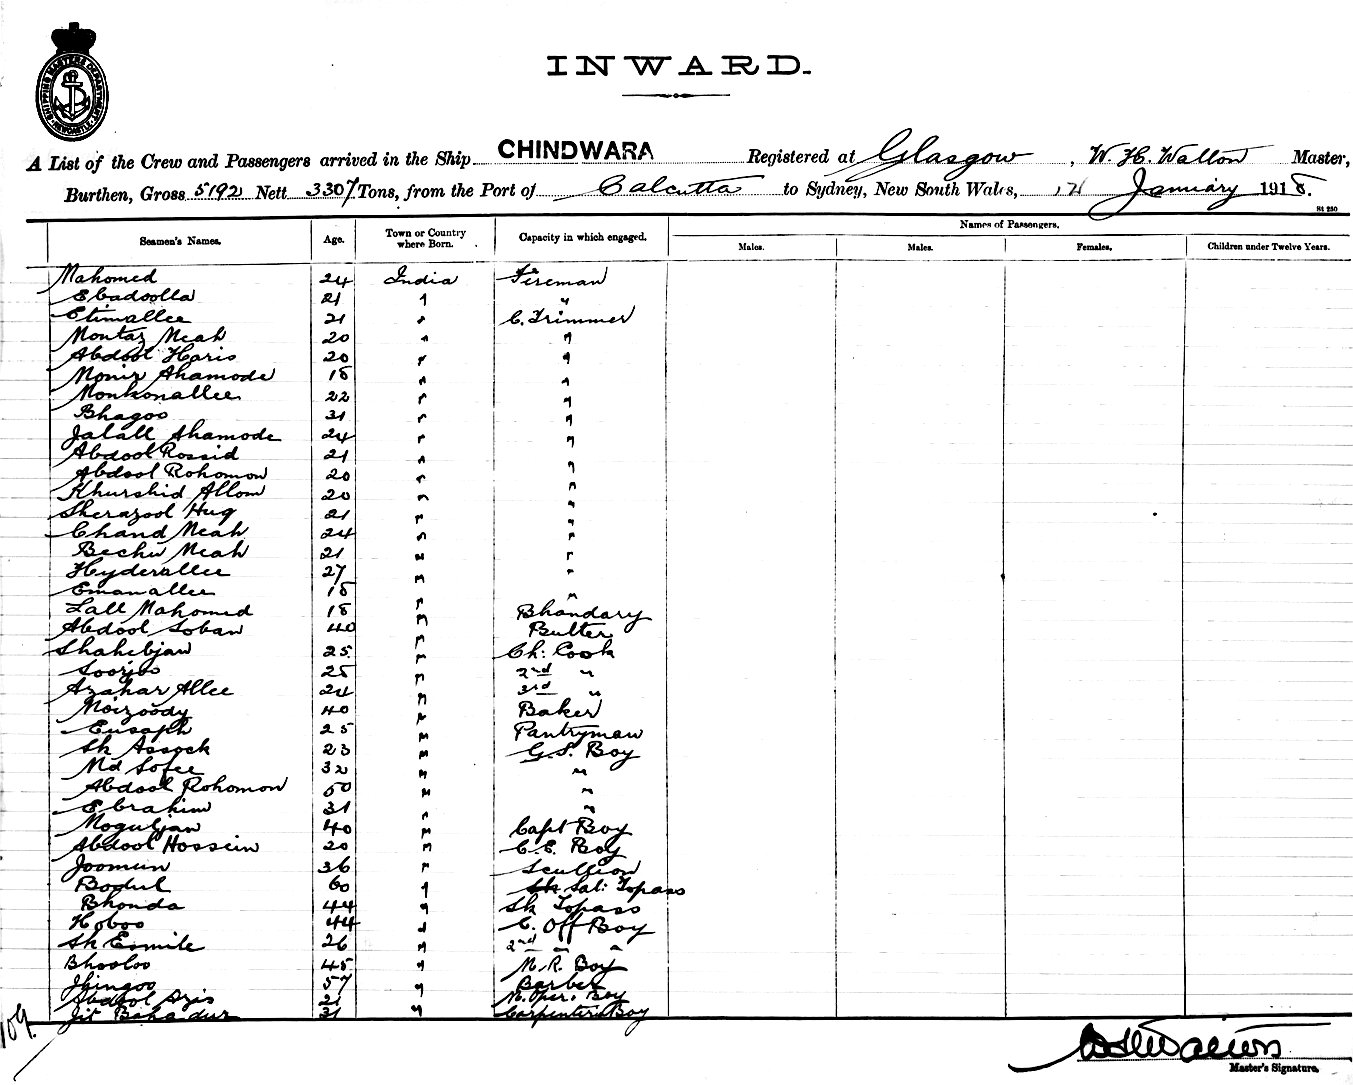 SHIPPING MASTERS DEPARTMENT SYDNEY
INWARD.
A List of the Crew and Passengers arrived in the Ship CHINDWARA Registered at Glasgow, W. H. Walton Master,
Burthen, Gross 5192 Nett 3307 Tons, from the Port of Calcutta to Sydney, New South Wales, January 1918.
St 250
Seamen's Names. Age. Town or Country where Born. Capacity in which engaged. Names of Passengers.
Males. Males. Females. Children under Twelve Years.
Mahomed 24 India Fireman
Ebadoolla 21 " "
Etimallee 21 " C. Trimmer
Montaz Meah 20 " "
Abdool Haris 20 " "
Monir Ahamode 18 " "
Monkonallee 22 " "
Bhagoo 31 " "
Jalall Ahamode 24 " "
Abdool Rossid 21 " "
Abdool Rohomon 20 " "
Khurshid Allom 20 " "
Sherazool Huq 21 " "
Chand Meah 24 " "
Bechu Meah 21 " "
Hyderallee 27 " "
Emanallee 18 " "
Lall Mahomed 18 " Bhandary
Abdool Soban 40 " Butler
Shahebjan 25 " Ch: Cook
Soorjoo 25 " 2nd "
Azahar Allee 24 " 3rd "
Moizoody 40 " Baker
Eusaph 25 " Pantryman
Sk Assock 23 " G.S. Boy
Md Sofee 32 " "
Abdool Rohomon 50 " "
Ebrahim 31 " "
Moguljan 40 " Capt Boy
Abdool Hossein 20 " C.E. Boy
Joomun 36 " Scullion
Bodul 60 " Sal: Topass
Bhonda 44 " Sk Topass
Hoboo 44 " C. Off Boy
Sk Esmile 26 " 2nd " "
Bhooloo 45 " M.R. Boy
Jhingoo 57 " Barber
Abdool Azis 21 " M. Oper: Boy
Jit Bahadur 31 " Carpenters Boy
109.
W H Walton
Master's Signature.